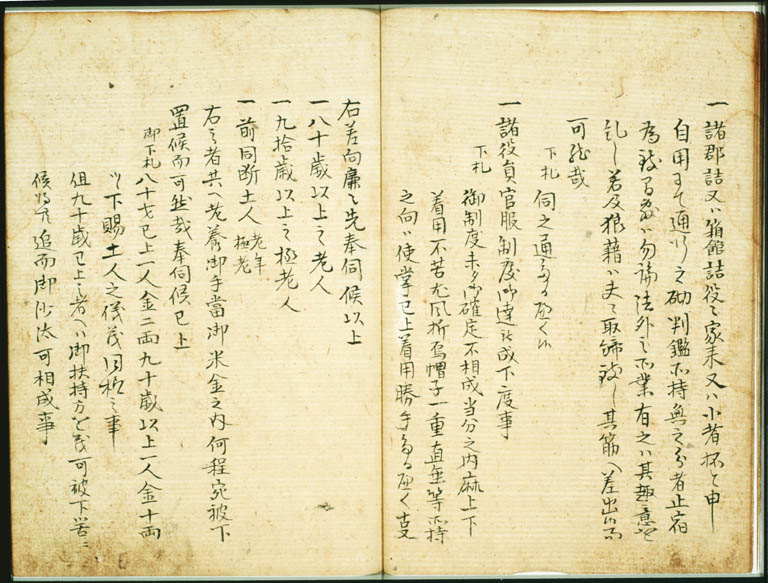 一諸郡詰又ハ箱館詰役々家来又ハ小者抔と申
自用ニて通行之砌判鑑不持無之分者止宿
為致間敷ハ勿論法外之所業有之ハ其趣意を
糺し若及狼藉ハ夫々取締致し其筋へ差出候而
可然哉
下札 伺之通たるへく候
一諸役員官服制度御達被成下度事
下札 御制度未タ御確定不相成当分之内麻上下
着用不苦尤風折烏帽子一重直垂等所持
之向ハ使掌已上着用勝手たるへく支
右差向廉々先奉伺候以上
一八十歳以上之老人
一九拾歳以上之極老人
一前同断土人 老年 極老
右之者共へ老養御手當御米金之内何程宛被下
置候而可然哉奉伺候已上
御下札 八十才已上一人金二両九十歳以上一人金十両
ツヽ下賜土人之儀茂同格之事
但九十歳已上之者へハ御扶持方をも可被下筈ニ
候得共追而御沙汰可相成事